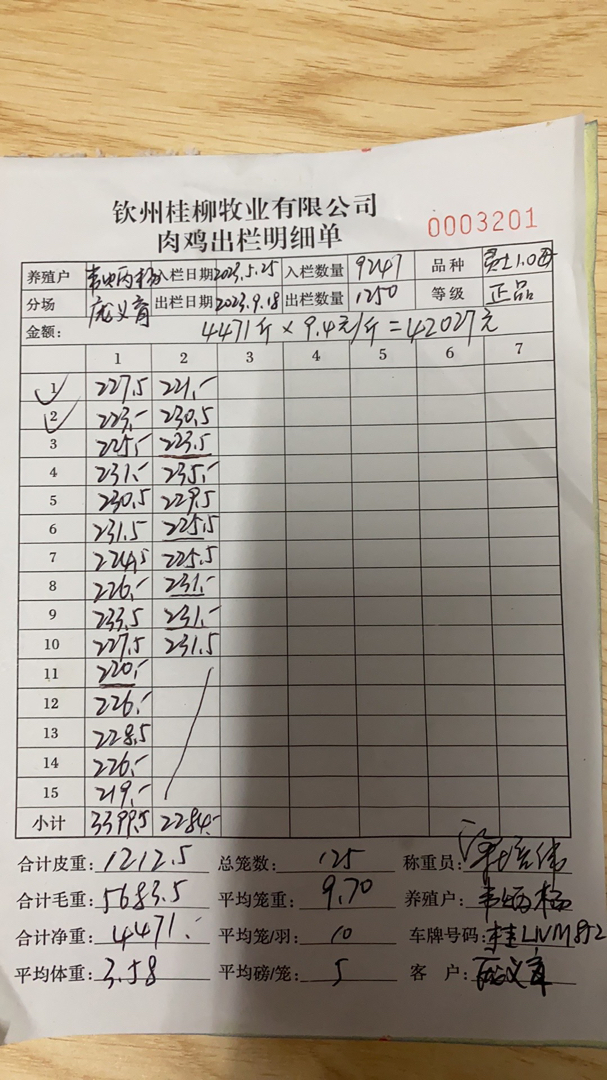 钦州桂柳牧业有限公司
肉鸡出栏明细单 0003201
养殖户 韦炳杨 入栏日期 2023.5.25 入栏数量 9247 品种
分场 庞义育 出栏日期 2023.9.18 出栏数量 1250 等级 正品
金额: 4471斤×9.4元/斤=42027元
1 2 3 4 5 6 7
1 227.5 221.-
2 223.- 230.5
3 225.- 223.5
4 231.- 235.-
5 230.5 229.5
6 231.5 225.5
7 224.5 225.5
8 226.- 231.-
9 233.5 231.-
10 227.5 231.5
11 220.-
12 226.-
13 228.5
14 226.-
15 219.-
小计 3399.5 2284.-
合计皮重: 1212.5 总笼数: 125 称重员:
合计毛重: 5683.5 平均笼重: 9.70 养殖户: 韦炳杨
合计净重: 4471.- 平均笼/羽: 10 车牌号码: 桂LNM852
平均体重: 3.58 平均磅/笼: 5 客 户: 庞义育